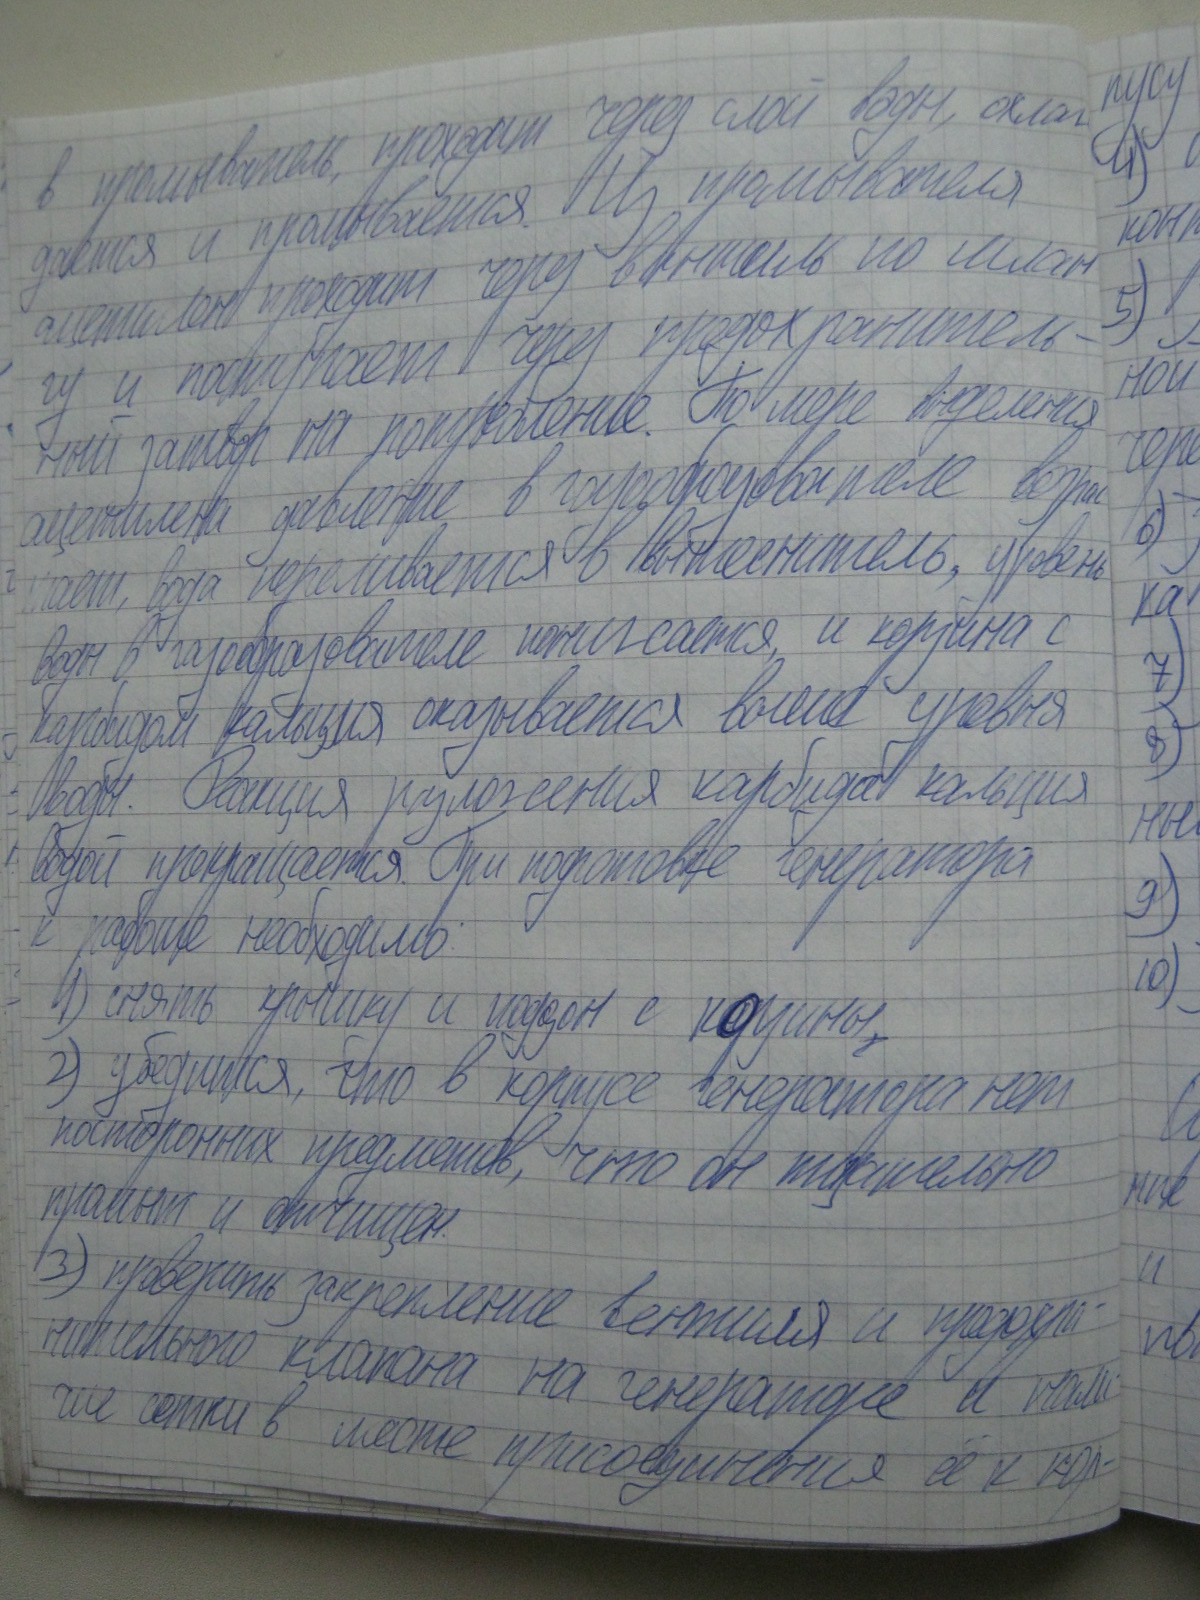 в промыватель, проходит через слой воды, охлаж
дается и промывается. Из промывателя
ацетилен проходит через вентиль по шлан
гу и поступает через предохранитель-
ный затвор на потребление. По мере выделения
ацетилена давление в газообразователе возрас
тает, вода переливается в вытеснитель, уровень
воды в газообразователе понижается, и корзина с
карбидом кальция оказывается выше уровня
воды. Реакция разложения карбида кальция
водой прекращается. При подготовке генератора
к работе необходимо:
1) снять крышку и поддон с корзины,
2) убедится, что в корпусе генератора нет
посторонних предметов, что он тщательно
промыт и отчищен.
3) проверить закрепление вентиля и предохра-
нительного клапана на генераторе и нали
чие сетки в месте присоединения её к кор-
пусу
4)
5)
ной
чере
6)
ка
7)
8)
ны
9)
10)
ние
и